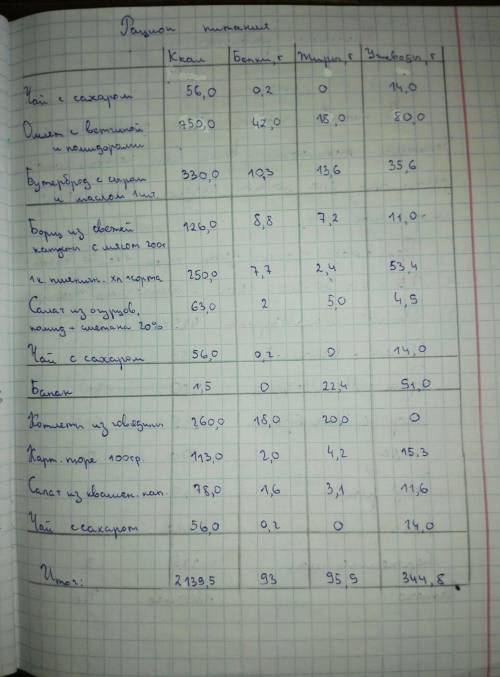 Рацион питания
Ккал Белки, г Жиры, г Углеводы, г
Чай с сахаром 56,0 0,2 0 14,0
Омлет с ветчиной 750,0 42,0 18,0 80,0
и помидорами
Бутерброд с сыром 330,0 10,3 13,6 35,6
и маслом 1 шт.
Борщ из свежей 126,0 8,8 7,2 11,0
капусты с мясом 200г
1к пшенич. хл 1 сорта 250,0 7,7 2,4 53,4
Салат из огурцов, 63,0 2 5,0 4,9
помид + сметана 20%
Чай с сахаром 56,0 0,2 0 14,0
Банан 1,5 0 22,4 91,0
Котлеты из говядины 260,0 18,0 20,0 0
Карт. пюре 100гр. 113,0 2,0 4,2 15,3
Салат из квашен. кап. 78,0 1,6 3,1 11,6
Чай с сахаром 56,0 0,2 0 14,0
Итог: 2139,5 93 95,9 344,8